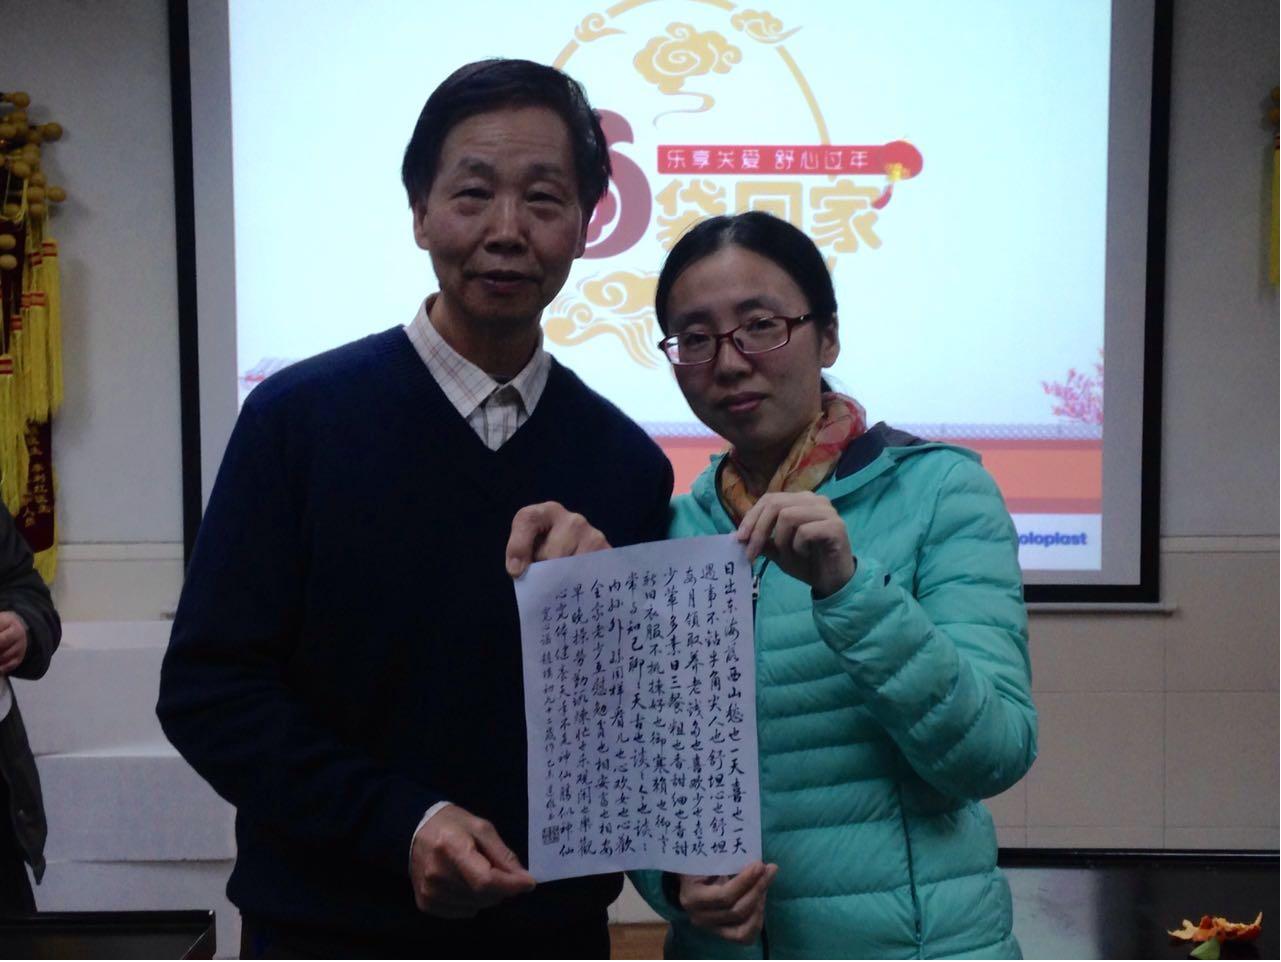 乐享关爱 舒心过年
袋回家
oloplast
日出东海落西山愁也一天喜也一天
遇事不钻牛角尖人也舒坦心也舒坦
每月领取养老钱多也喜欢少也喜欢
少荤多素日三餐粗也香甜细也香甜
新旧衣服不挑拣好也御寒赖也御寒
常与知己聊聊天古也谈谈今也谈谈
内孙外孙同样看儿也心欢女也心欢
全家老少互慰勉贫也相安富也相安
早晚操劳勤锻炼忙也乐观闲也乐观
心宽体健养天年不是神仙胜似神仙
宽心谣赵朴初九十二岁作